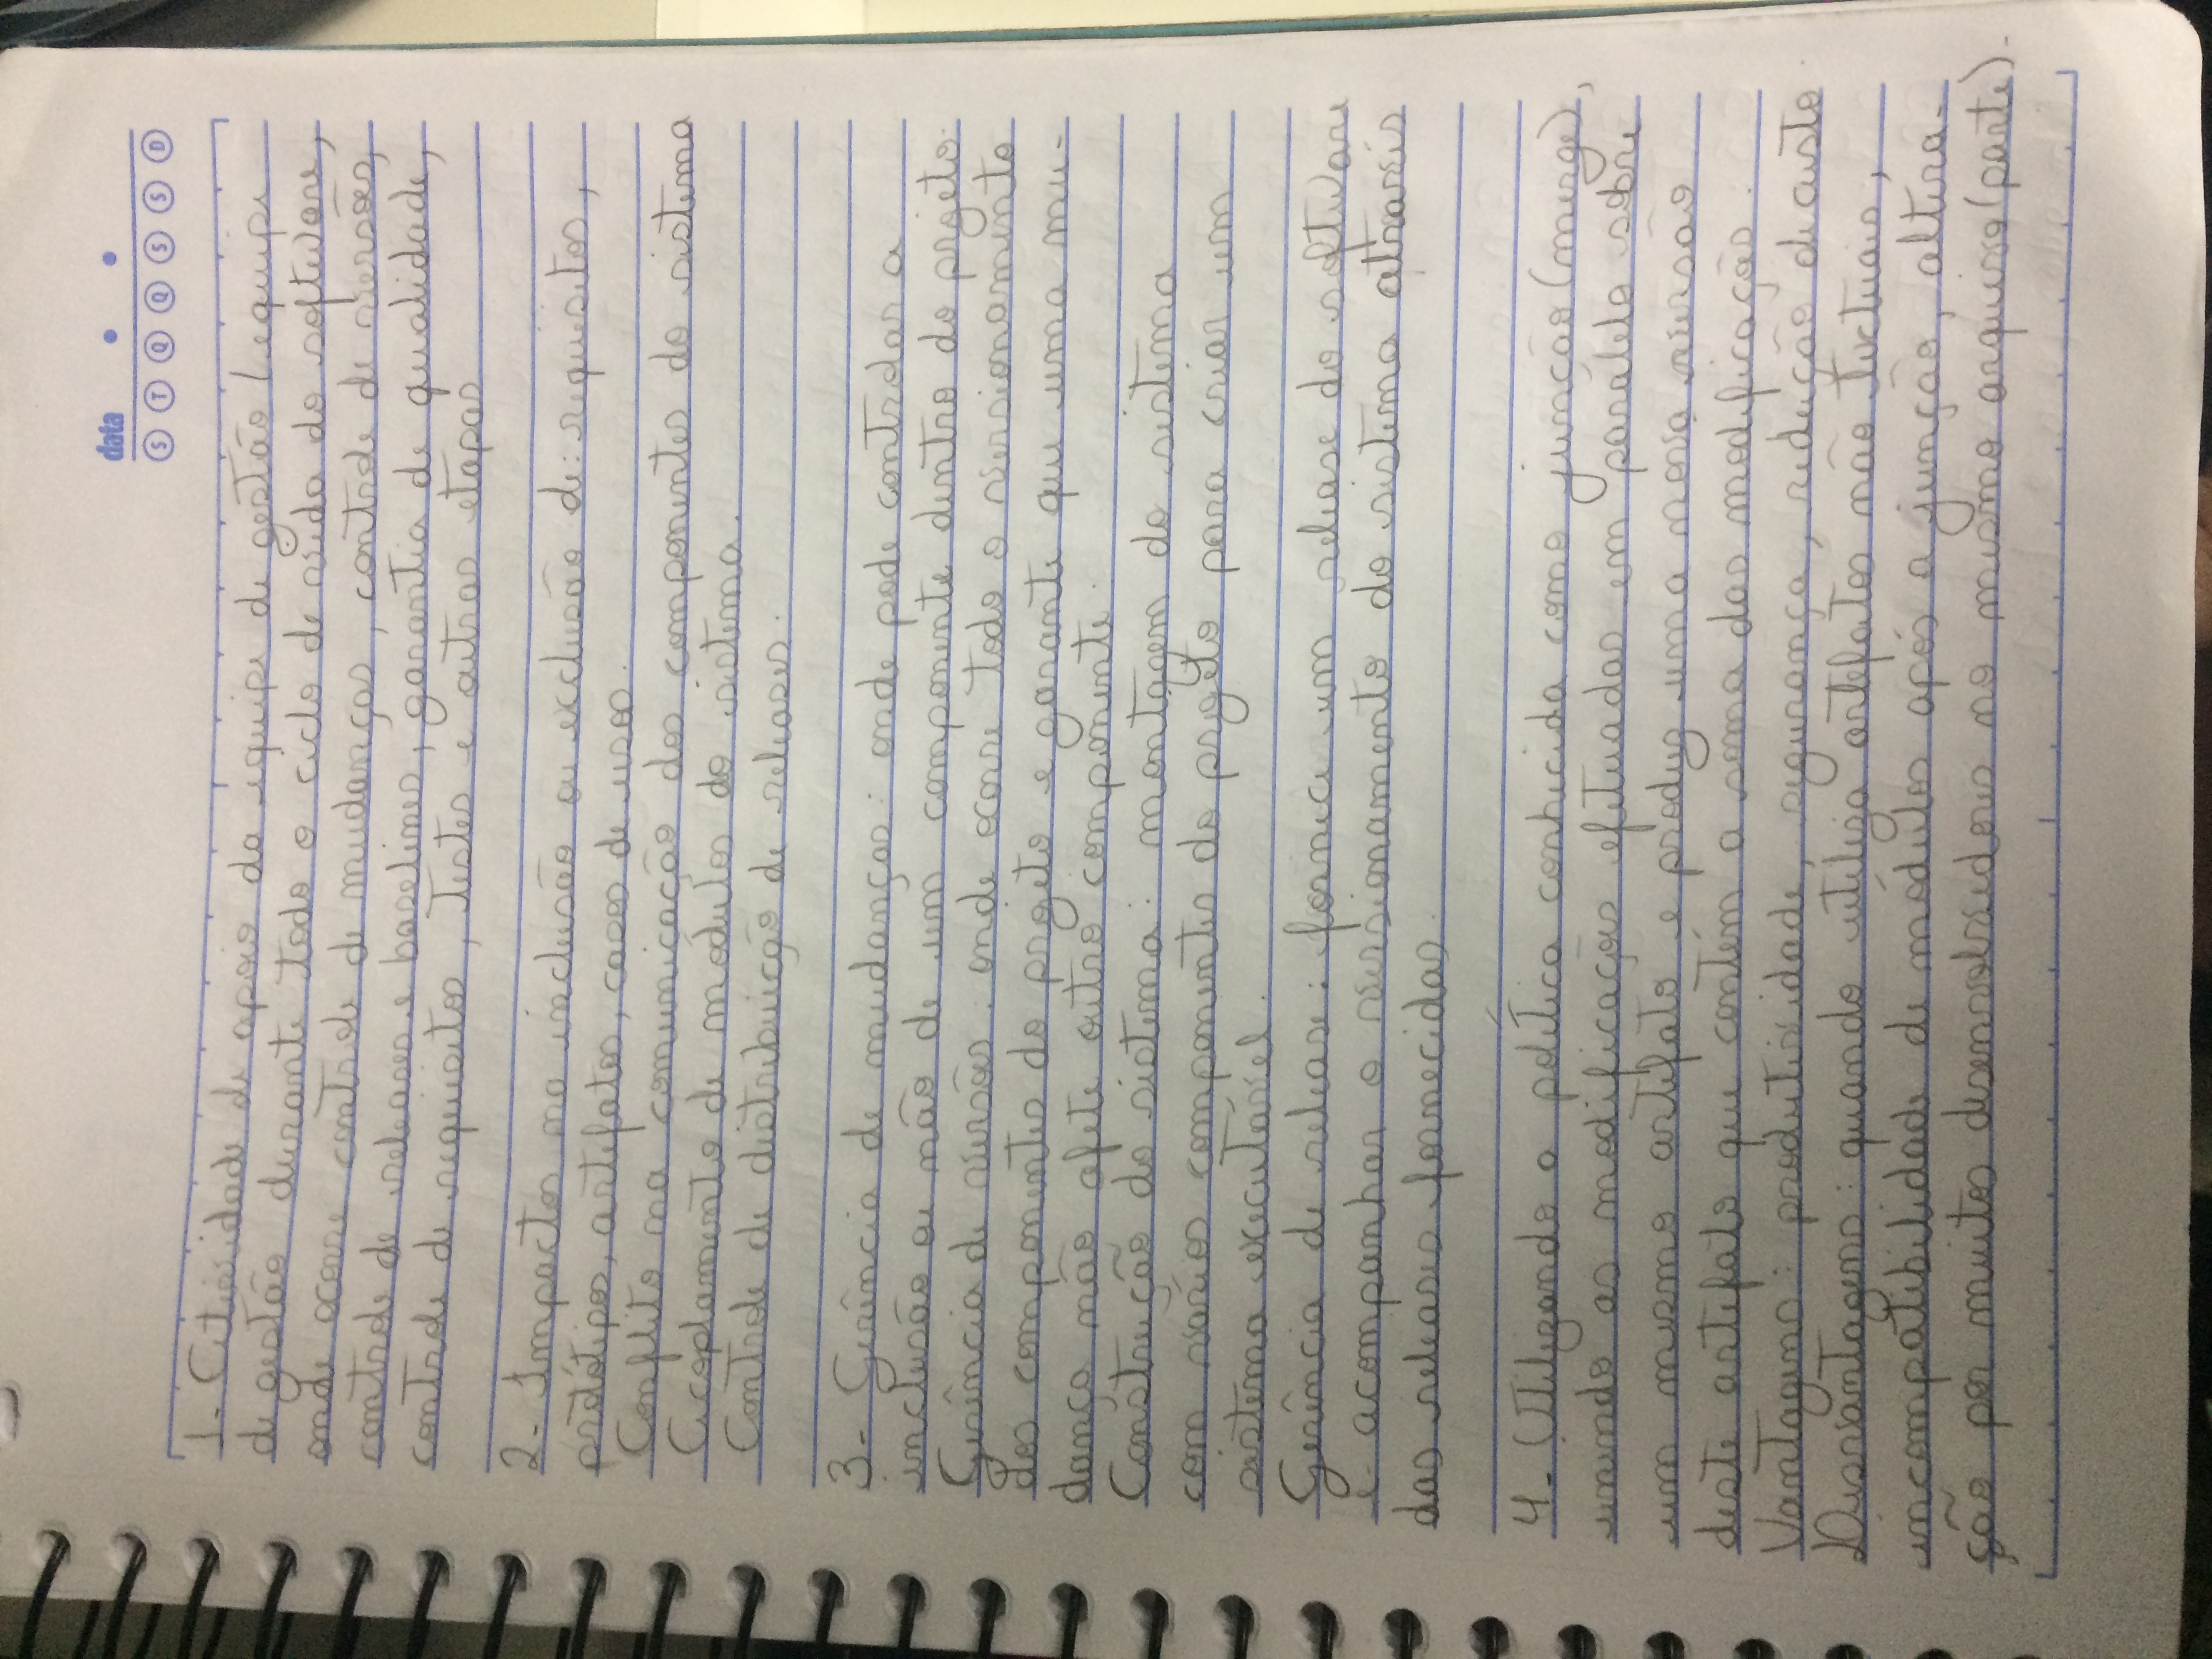 data
S T Q Q S S D
1- Atividade de apoio da equipe de gestão / equipe
de gestão durante todo o ciclo de vida do software,
onde ocorre controle de mudanças, controle de versões,
controle de releases e baselines, garantia de qualidade,
controle de requisitos, testes e outras etapas
2- Impactos na inclusão ou exclusão de: requisitos,
protótipos, artefatos, casos de usos.
Conflito na comunicação dos componentes do sistema
Acoplamento de módulos do sistema.
Controle de distribuição de releases.
3- Gerência de mudanças: onde pode controlar a
inclusão ou não de um componente dentro do projeto.
Gerência de versões: onde ocorre todo o versionamento
dos componentes do projeto e garante que uma mu-
dança não afete outro componente.
Construção do sistema: montagem do sistema
com vários componentes do projeto para criar um
sistema executável.
Gerência de release: fornece um release do software
e acompanhar o versionamento do sistema através
das releases fornecidas.
4- Utilizando a política conhecida como junção (merge),
unindo as modificações efetuadas em paralelo sobre
um mesmo artefato e produz uma nova versão
deste artefato que contém a soma das modificações.
Vantagens: produtividade, segurança, redução de custo.
Desvantagens: quando utiliza artefatos não textuais,
incompatibilidade de módulos após a junção, altera-
ção por muitos desenvolvedores no mesmo arquivo (parte).